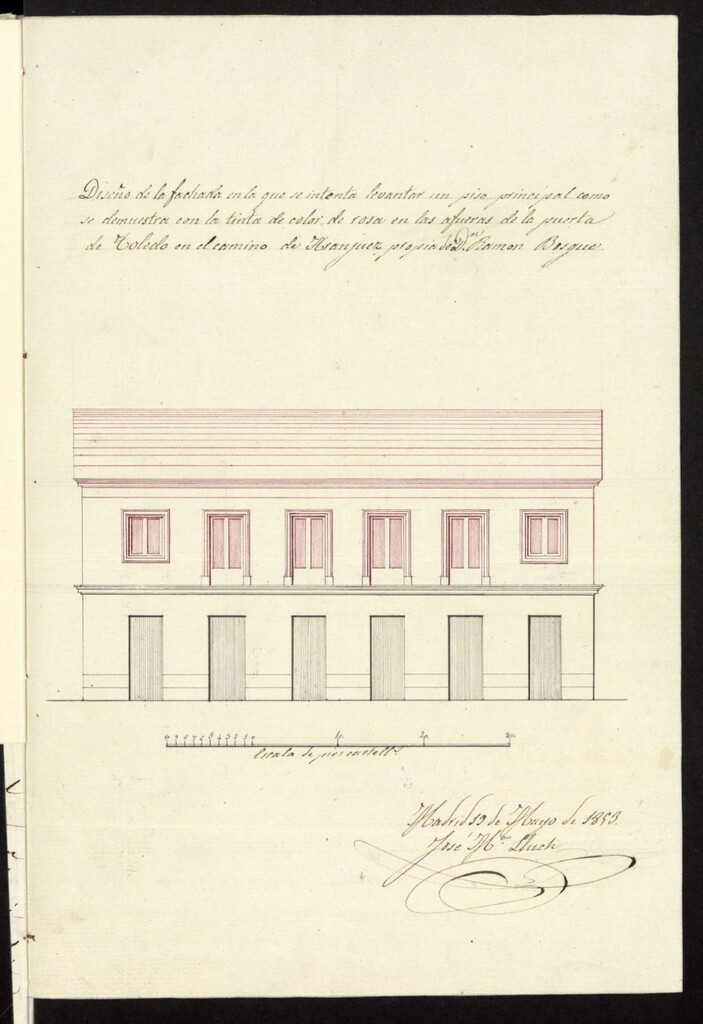 Diseño de la fachada en la que se intenta levantar un piso principal como
se demuestra con la tinta de color de rosa en las afueras de la puerta
de Toledo en el camino de Aranjuez, propia de Dn. Ramon Bosque
10 9 8 7 6 5 4 3 2 1 0 10 20 30
Escala de pies castells.
Madrid 19 de Mayo de 1853.
José Ma. Lluch